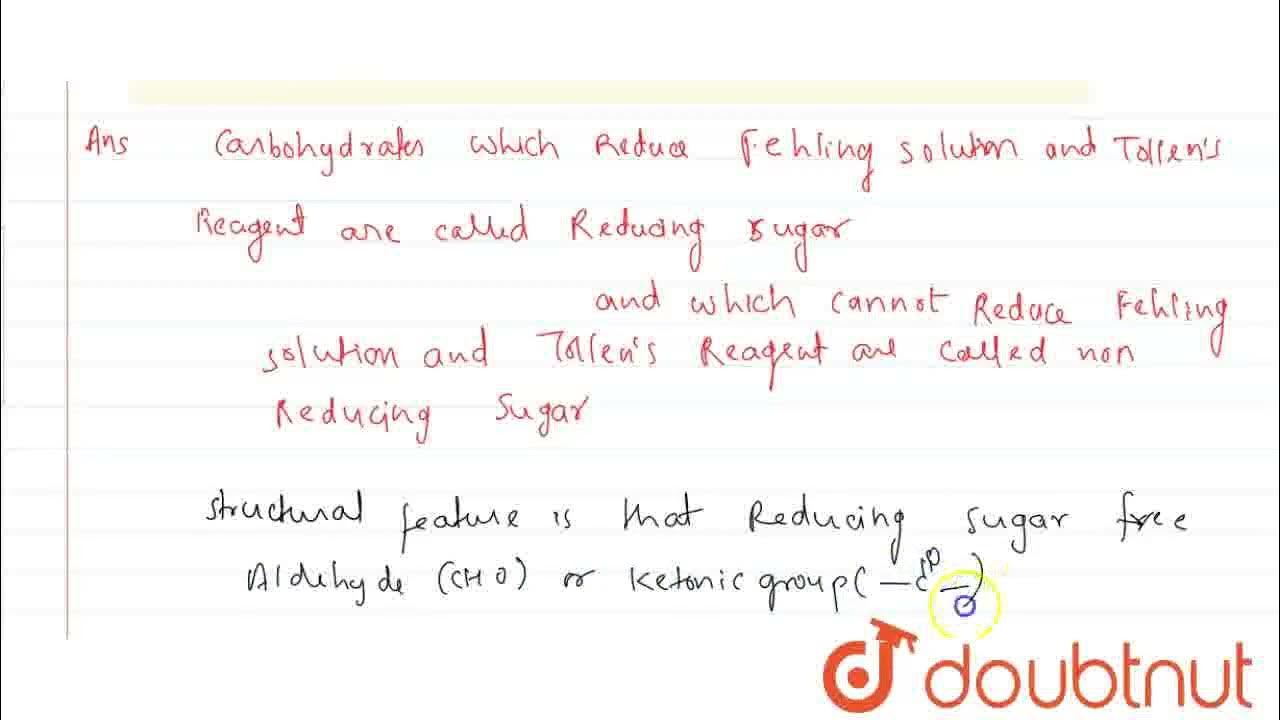 Ans Carbohydrates which Reduce Fehling solution and Tollen's
Reagent are called Reducing sugar
and which cannot Reduce Fehling
solution and Tollen's Reagent are called non
Reducing Sugar
structural feature is that Reducing sugar free
Aldehyde (CHO) or Ketonic group (-CO-)
doubtnut